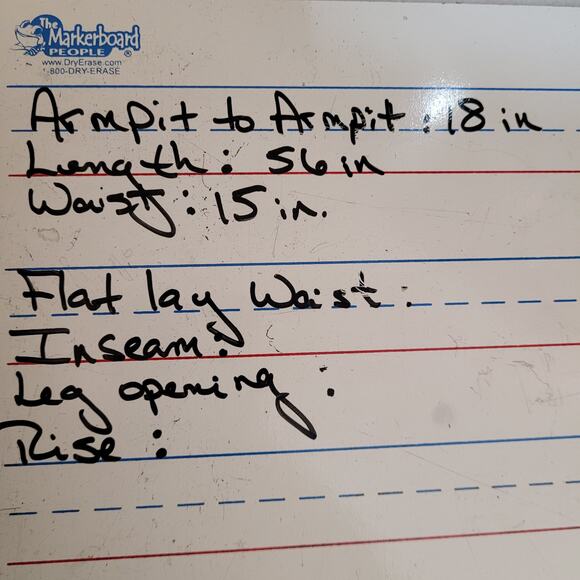 The
Markerboard
PEOPLE®
www.DryErase.com
1-800-DRY-ERASE
Armpit to Armpit: 18 in
Length: 56 in
Waist: 15 in.
Flat lay Waist:
Inseam:
Leg opening:
Rise: